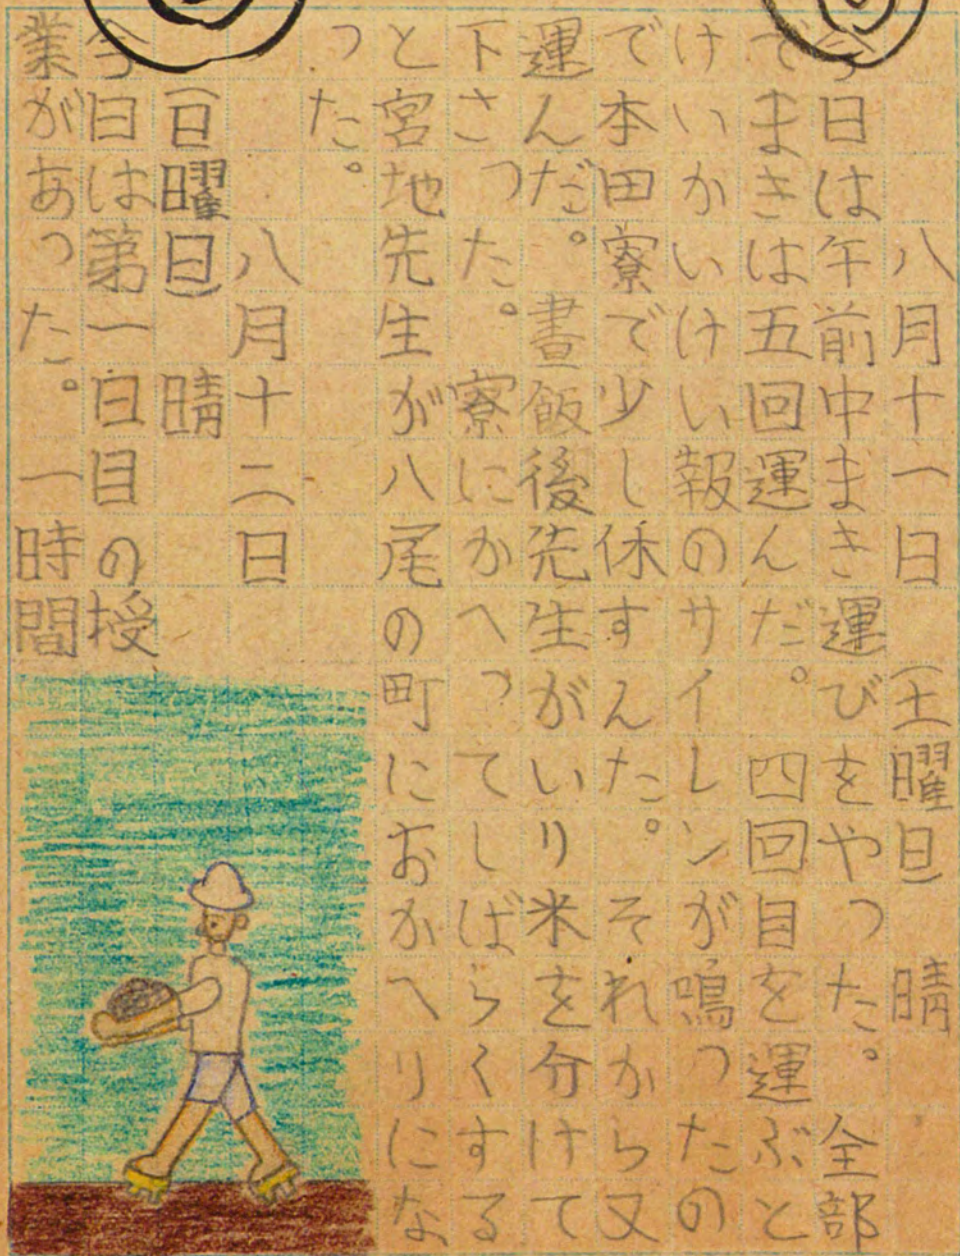 八月十一日　(土曜日)　晴
今日は午前中まき運びをやった。全部
でまきは五回運んだ。四回目を運ぶと
けいかいけい報のサイレンが鳴つたの
で本田寮で少し休すんた。それから又
運んだ。晝飯後先生がいり米を分けて
下さつた。寮にかへつてしばらくする
と宮地先生が八尾の町におかへりにな
つた。
八月十二日
(日曜日)　晴
今日は第一日目の授
業があつた。一時間